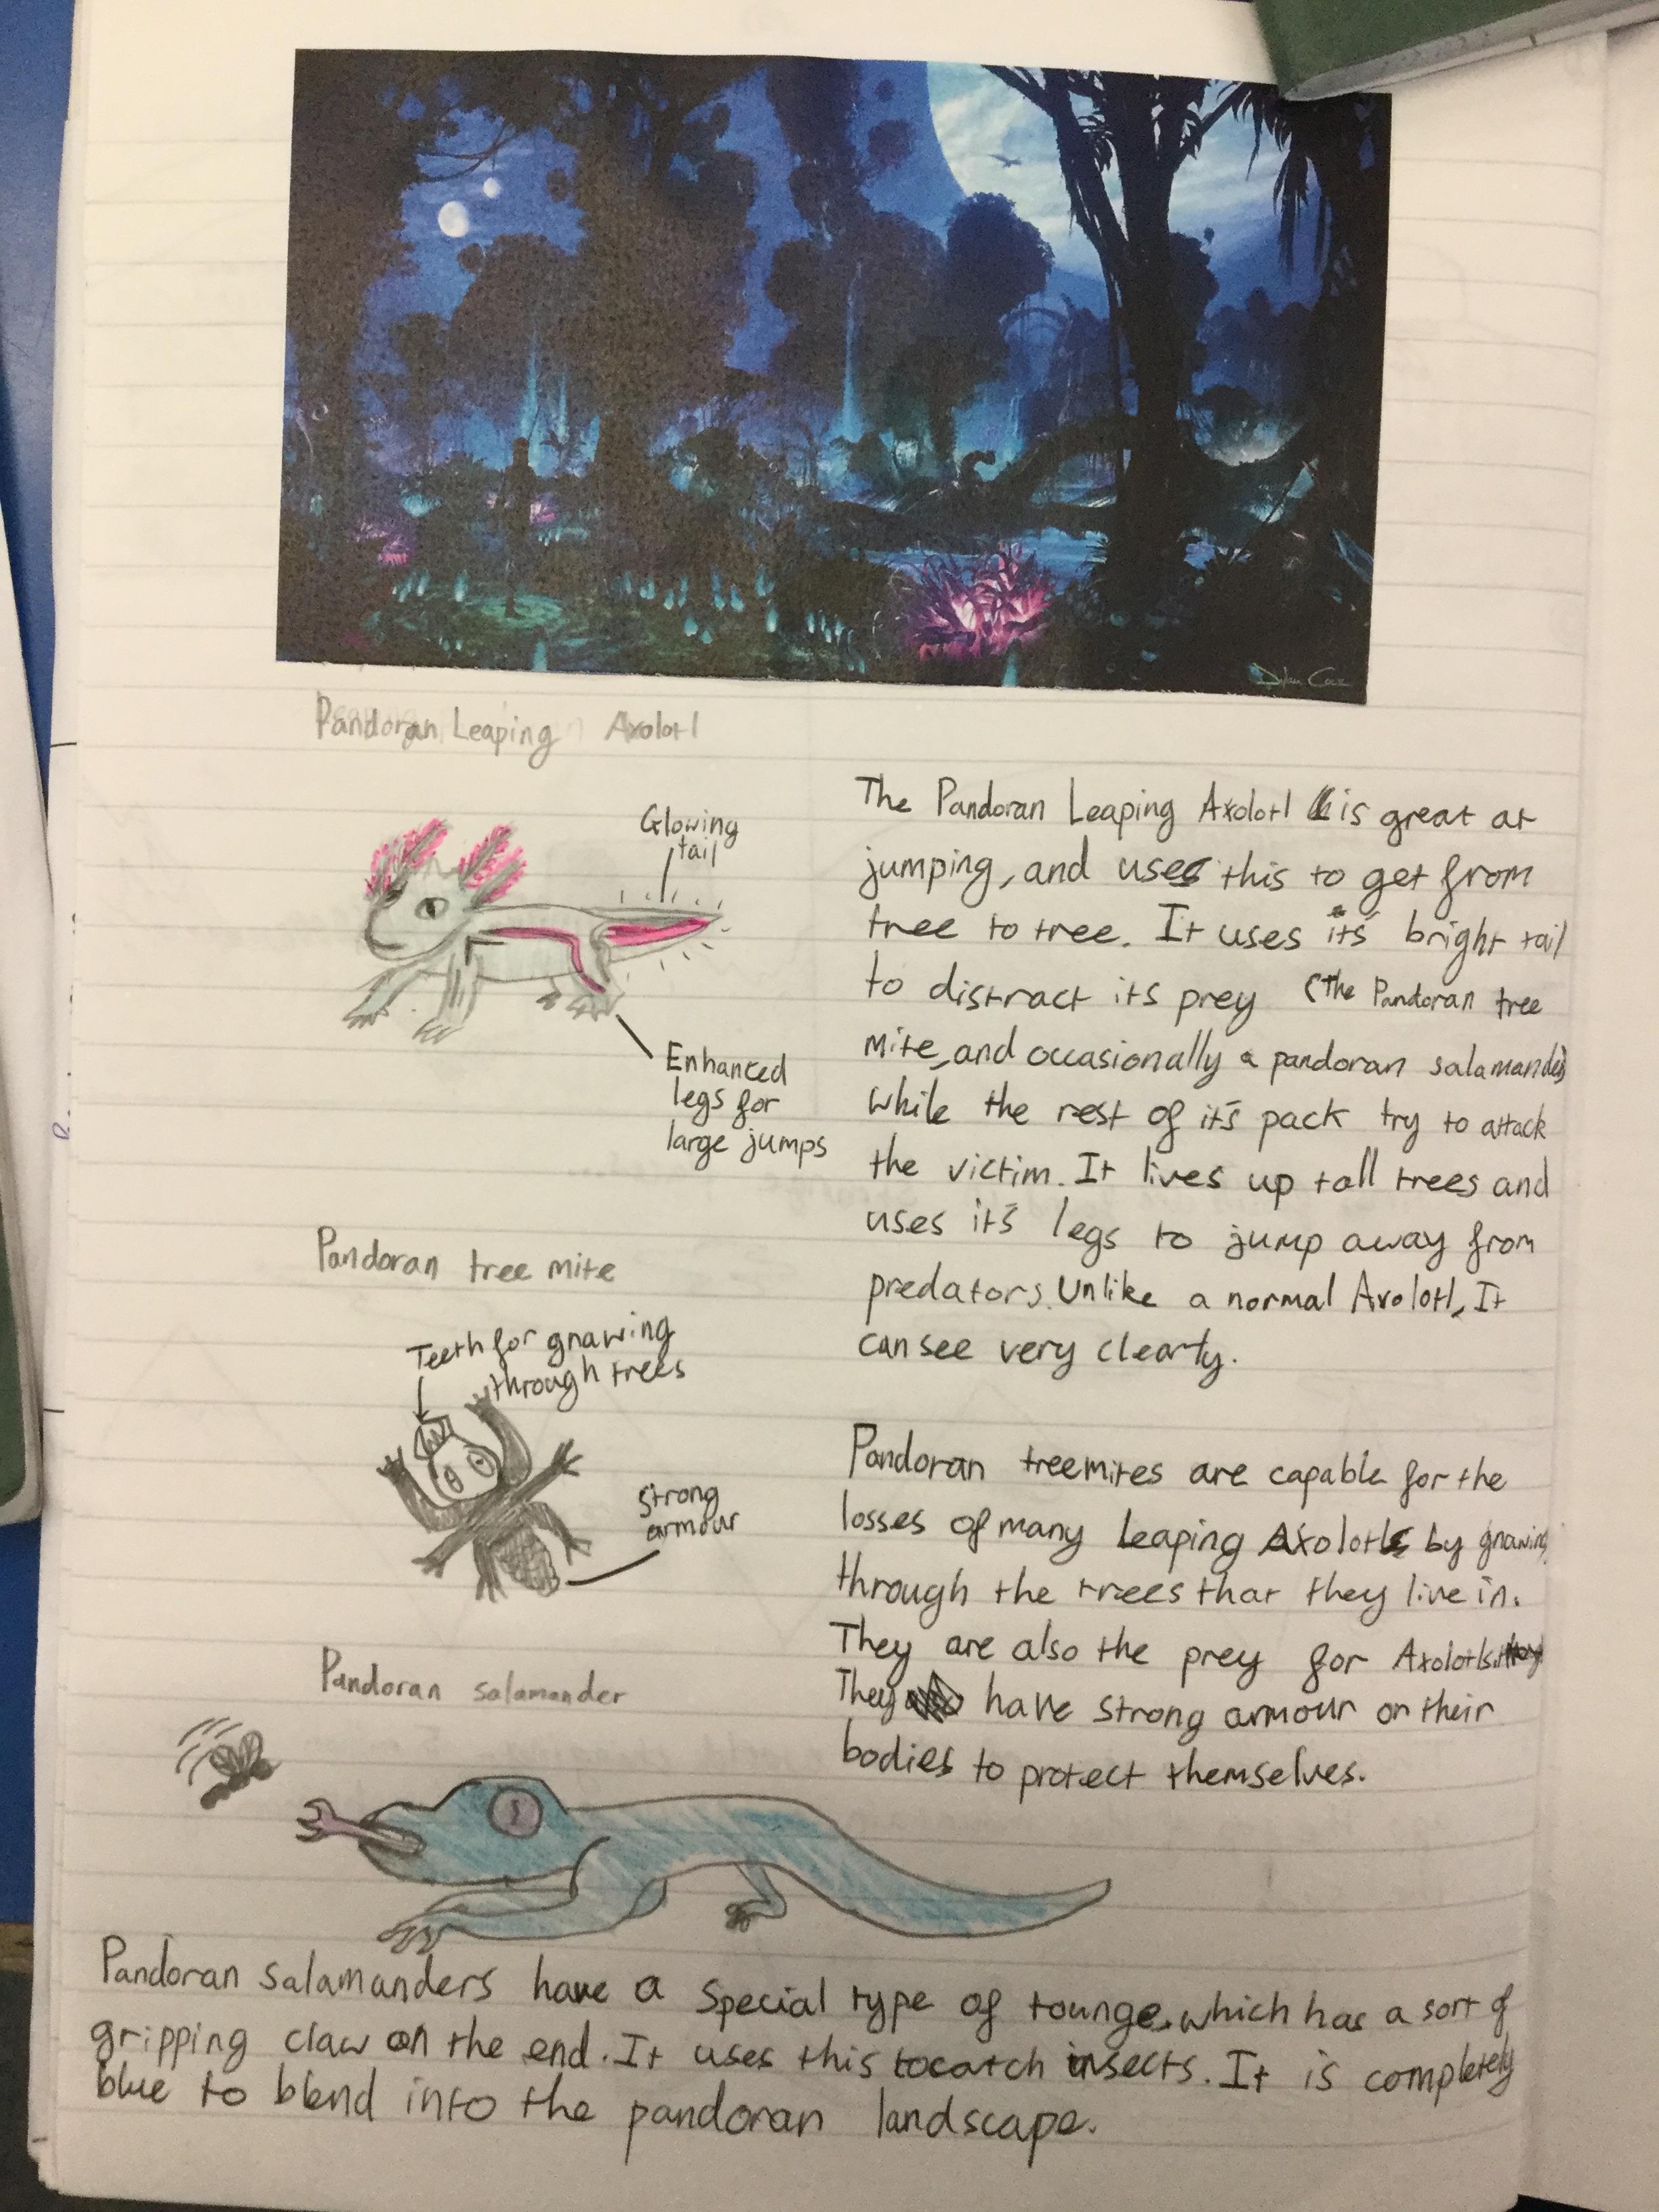 Dylan Cole
Pandoran Leaping Axolotl
Glowing
tail
Enhanced
legs for
large jumps
The Pandoran Leaping Axolotl is great at
jumping, and uses this to get from
tree to tree. It uses it's bright tail
to distract its prey (The Pandoran tree
mite, and occasionally a pandoran salamander)
while the rest of it's pack try to attack
the victim. It lives up tall trees and
uses it's legs to jump away from
predators. Unlike a normal Axolotl, It
can see very clearly.
Pandoran tree mite
Teeth for gnawing
through trees
Strong
armour
Pandoran treemites are capable for the
losses of many Leaping Axolotls by gnawing
through the trees that they live in.
They are also the prey for Axolotls.
They have strong armour on their
bodies to protect themselves.
Pandoran salamander
Pandoran salamanders have a special type of tounge, which has a sort of
gripping claw on the end. It uses this to catch insects. It is completely
blue to blend into the pandoran landscape.